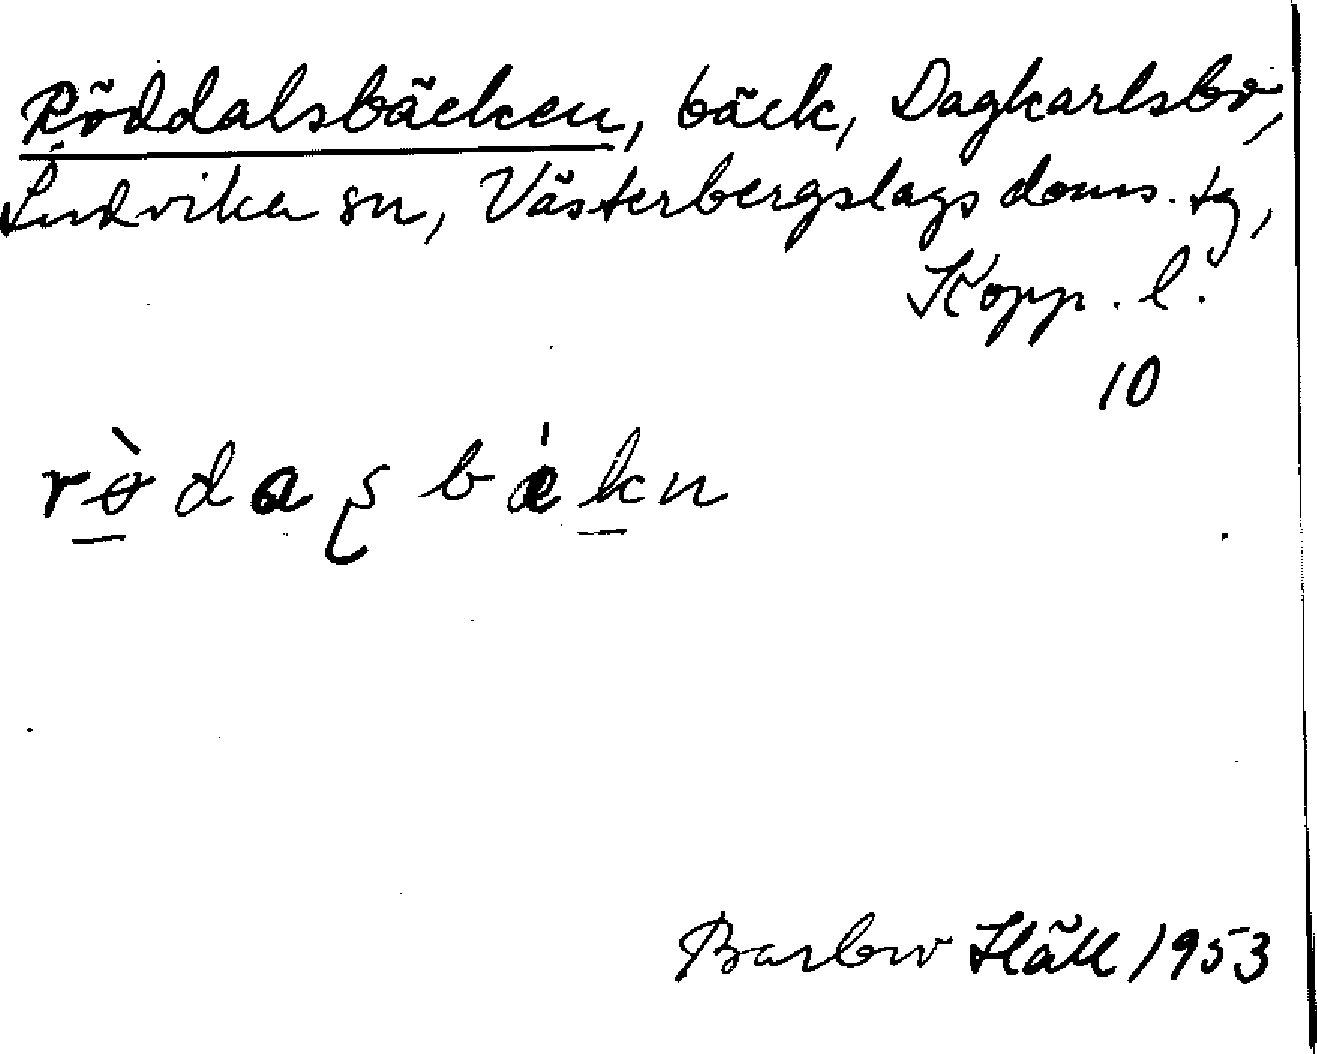 Röddalsbäcken, bäck, Dagkarlsbo,
Ludvika sn, Västerbergslags doms. tg,
Kopp. l.
10
rɵ̀daʂbékn
Barbro Häll 1953